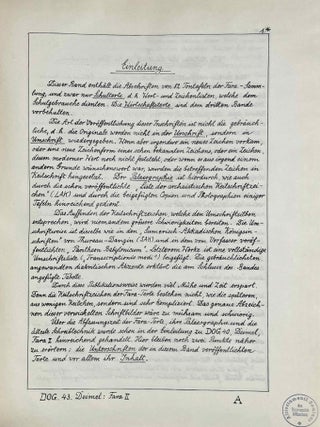 1*
Einleitung
Dieser Band enthält die Abschriften von 82 Tontafeln der Fara-Samm-
lung, und zwar nur Schultexte, d.h. Wort- und Zeichenlisten, welche dem
Schulgebrauche dienten. Die Wirtschaftstexte sind dem dritten Bande
vorbehalten.
Die Art der Veröffentlichung dieser Inschriften ist nicht die gebräuch-
liche, d.h. die Originale werden nicht in der Urschrift, sondern in
Umschrift wiedergegeben. Wenn aber irgendwo ein neues Zeichen vorkam
oder eine neue Zeichenform eines schon bekannten Zeichens, oder ein Zeichen,
dessen moderner Wert noch nicht feststeht, oder wenn es aus irgend einem
andern Grunde wünschenswert war, wurden die betreffenden Zeichen in
Keilschrift hingesetzt. Der Paläographie ist hierdurch, wie auch
durch die schon veröffentlichte "Liste der archaistischen Keilschriftzei-
chen" (LAK) und durch die beigefügten Copien und Photographien einiger
Tafeln hinreichend gedient.
Das Auffinden der Keilschriftzeichen, welche den Umschrifttexten
entsprechen, wird niemandem größere Schwierigkeiten bereiten. Die Um-
schriftweise ist dieselbe wie in den "Sumerisch-Akkadischen Königsin-
schriften" von Thureau-Dangin (SAK) und in dem vom Verfasser veröf-
fentlichten "Pantheon Babylonicum". Letzterem Werke ist eine vollständige
Umschriftliste ("Transcriptionis modi") beigefügt. Die gebräuchlichsten
angewandten diakritischen Akzente erklärt die am Schlusse des Bandes
angefügte Tabelle.
Durch diese Publikationsweise wurden viel Mühe und Zeit erspart.
Denn die Keilschriftzeichen der Fara-Texte bestehen nicht, wie die späteren,
aus wenigen Keilchen, sondern sind sehr kompliziert. Das genaue Abzeich-
nen dieser verwickelten Schriftbilder wäre zu mühsam und schwierig.
Über die Abfassungszeit der Fara-Texte, ihre Paläographie und die
älteste Schreibtechnik wurde schon in der Einleitung zu DOG. 40, Deimel,
Fara I hinreichend gehandelt. Hier bleiben noch zwei Punkte näher
zu erörtern: die Unterschriften der in diesem Band veröffentlichten
Texte und vor allem ihr Inhalt.
DOG. 43. Deimel: Fara II
A